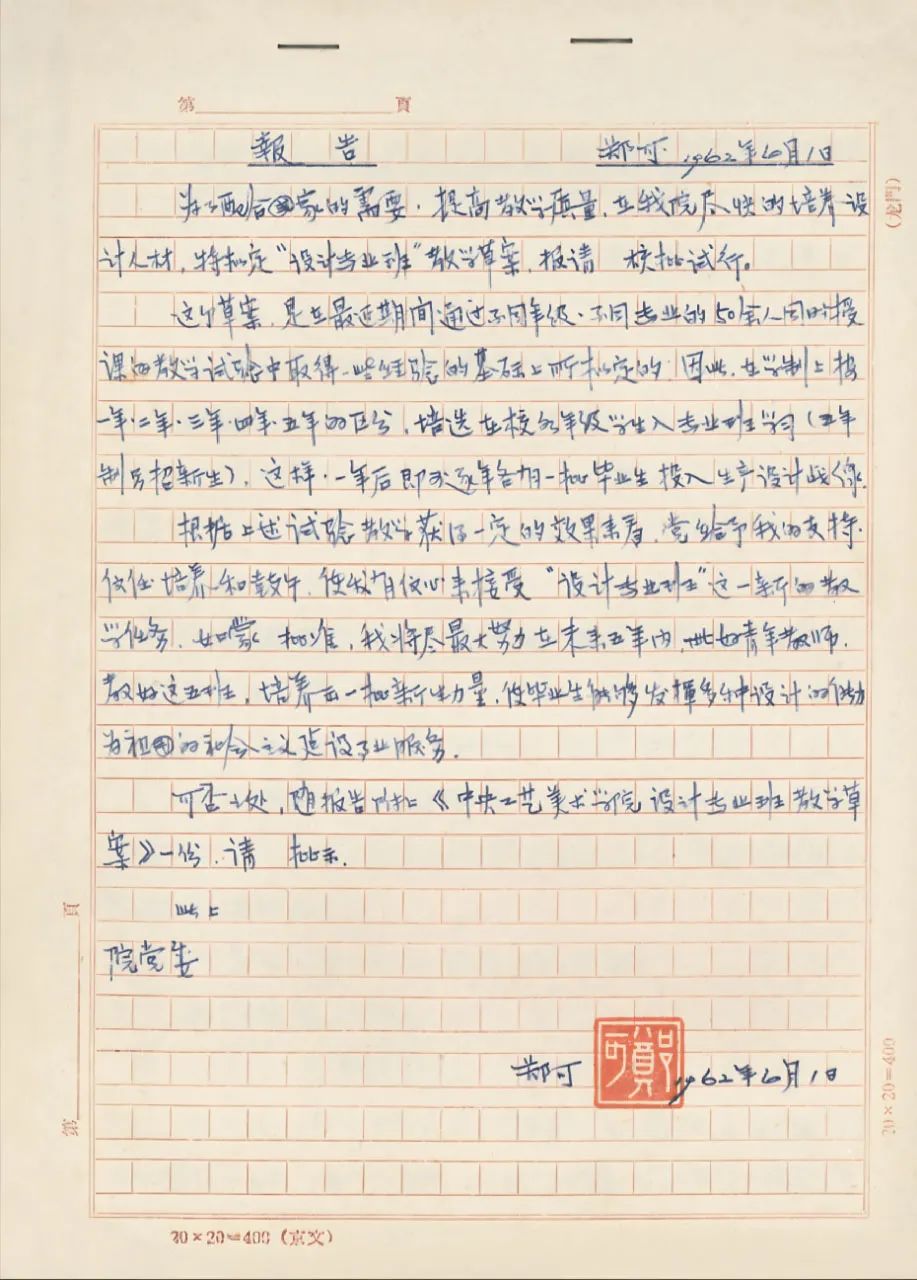 第 頁
報 告 郑可 1962年6月1日
为了配合国家的需要，提高教学质量，在我院尽快的培养设
计人材，特拟定“设计专业班”教学草案，报请 核批试行。
这个草案，是在最近期间通过不同年级、不同专业的50余人同时授
课的教学试验中取得一些经验的基础上所拟定的，因此，在学制上按
一年·二年·三年·四年·五年的区分，培选在校各年级学生入专业班学习（五年
制另招新生），这样，一年后即可逐年各有一批毕业生投入生产设计战线。
根据上述试验教学获得一定的效果来看，党给予我的支持、
信任培养和鼓午，使我有信心来接受“设计专业班”这一新的教
学任务，如蒙 批准，我将尽最大努力在未来五年内，
青年教师，
教好这五班，培养出一批新生力量，使毕业生能够发揮多种设计的能力
为祖国的社会主义建设事业服务。
可否之处，随报告附上《中央工艺美术学院设计专业班教学草
案》一份，请 批示。
此上
院党委
郑可 1962年6月1日
鄭可
第 頁
20×20=400（京文）
（龙門）
20×20=400